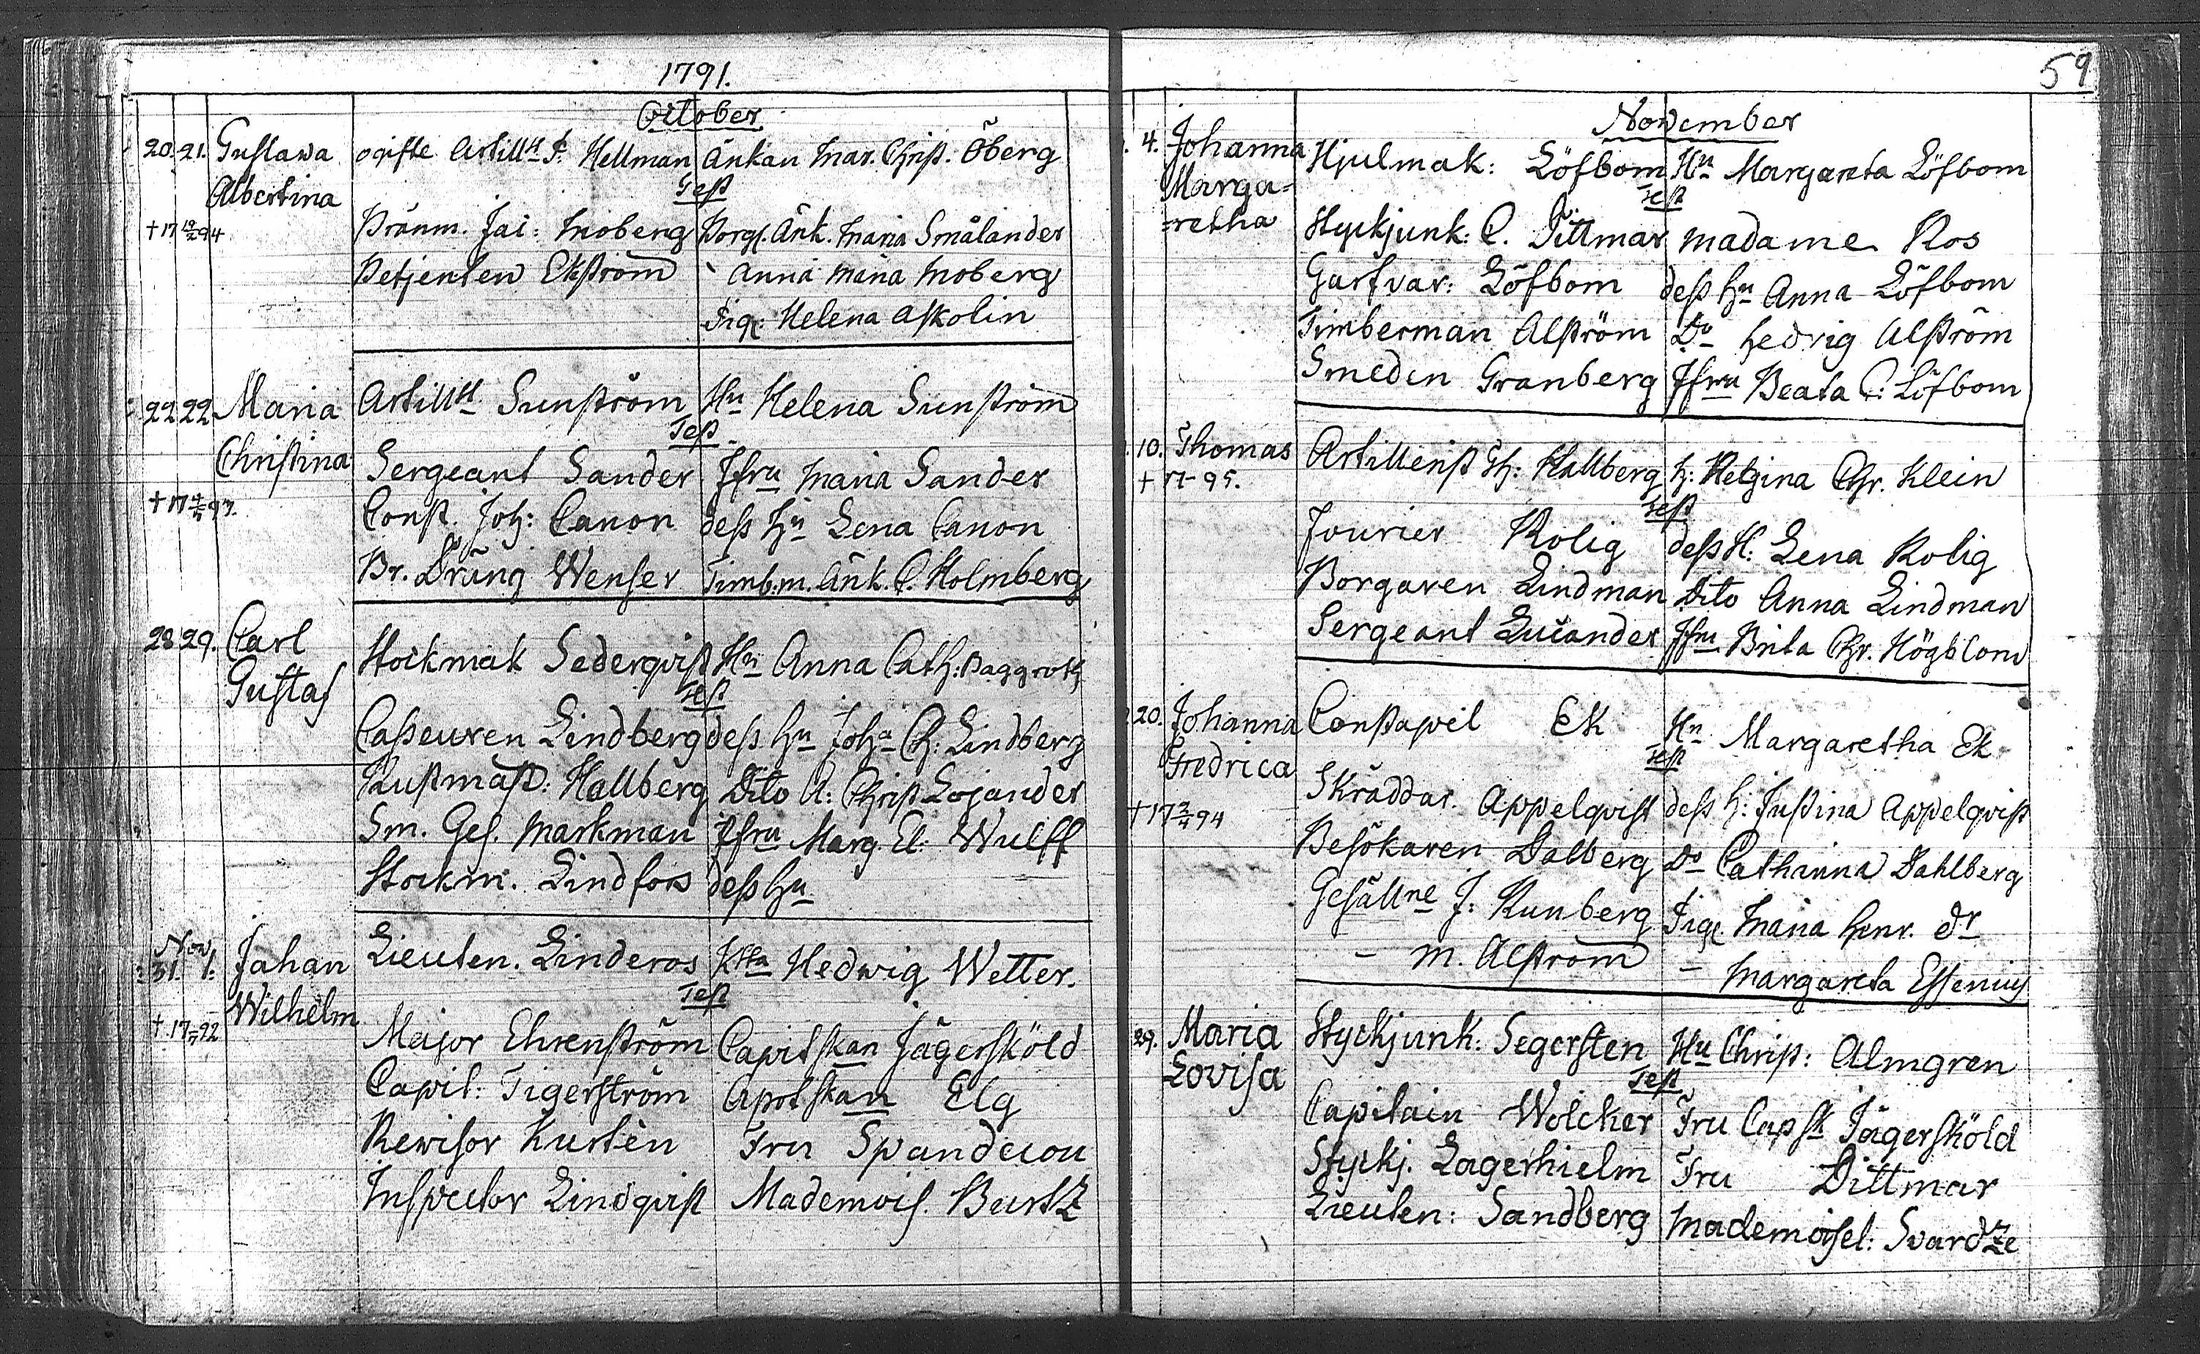 1791.
October
20. 21. Gustava ogifte Artillst F. Hellman Änkan Mar. Christ. Öberg
Albertina Test
†17 94 Bränm. Jai: Moberg Borg. Änk. Maria Smålander
Betjenten Ekström Anna Maria Moberg
Pig: Helena Askolin
22 22 Maria Artillst. Sunström Hu Helena Sunström
Test
Christina Sergeant Sander Jfru Maria Sander
† 17 97. Const. Joh: Canon dess Hu Lena Canon
Br. Dräng Wenser Timb.m. Änk. C. Holmberg
28 29. Carl Stockmak Sederqvist Hu Anna Cath: Baggroth
Gustaf Test
Casseuren Lindberg dess Hu Joha Ch: Lindberg
Rustmäst: Hallberg Dito A: Christ Lojander
Sm. Ges. Markman Jfru Marg. El. Wulff
Stockm. Lindfors dess Hu
Nov.
31. 1. Johan Lieuten. Linderos Hedwig Wetter.
Wilhelm Test
† 17 92 Major Ehrenström Capitskan Jägersköld
Capit: Tigerström Apotskan Elg
Revisor Kustén Fru Spandeiou
Inspector Lindqvist Mademois. Burtz
59
November
4. Johanna Hjulmak: Löfbom Hu Margareta Löfbom
Marga= Test
=retha Styckjunk: C. Dittmar Madame Ros
Garfvar: Löfbom dess Hu Anna Löfbom
Timberman Alström Do Hedvig Alström
Smeden Granberg Jfru Beata C: Löfbom
10. Thomas Artillerist Th: Hallberg h: Regina Chr. Klein
† 17 95. Test
Fourier Rolig dess H: Lena Rolig
Borgaren Lindman Dito Anna Lindman
Sergeant Lucander Jfru Brita Chr. Högblom
20. Johanna Constapel Ek Hu Margaretha Ek
Fredrica Test
Skräddar. Appelqvist dess h: Justina Appelqvist
† 17 94 Besökaren Dalberg Do Catharina Dahlberg
Gesällne J: Runberg Pig Maria Henr. dr
– M. Alström – Margareta Essenius
29. Maria Styckjunk: Segersten Hu Christ: Almgren
Lovisa Test
Capitain Wolcker Fru Capsk Jägersköld
Styckj. Lagerhielm Fru Dittmar
Lieuten: Sandberg Mademoisel: Svard